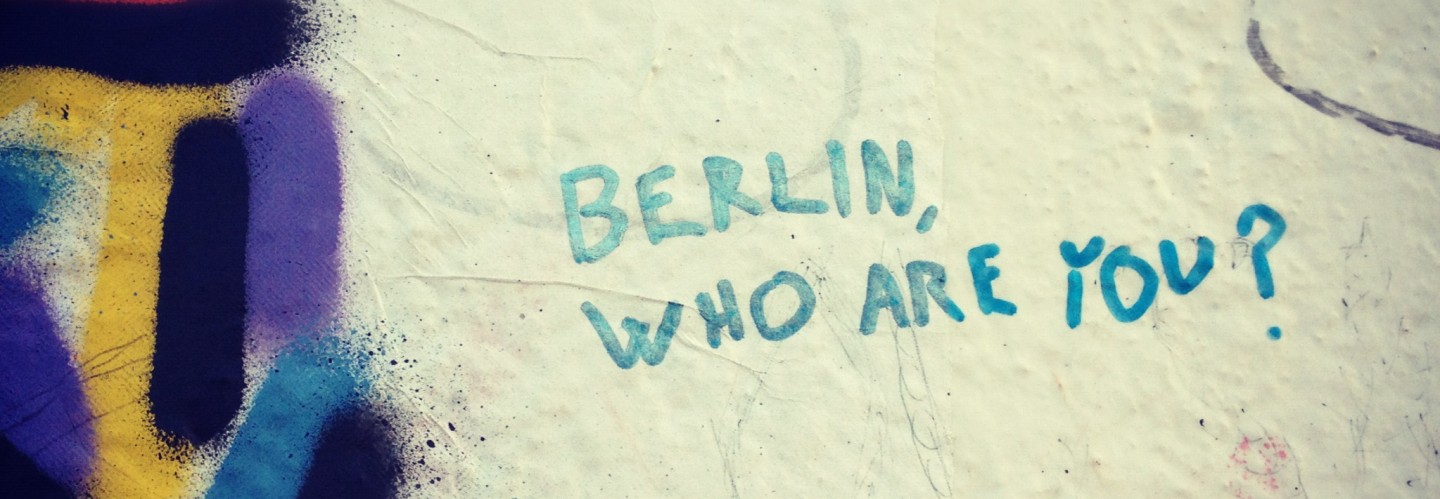 BERLIN,
WHO ARE YOU?